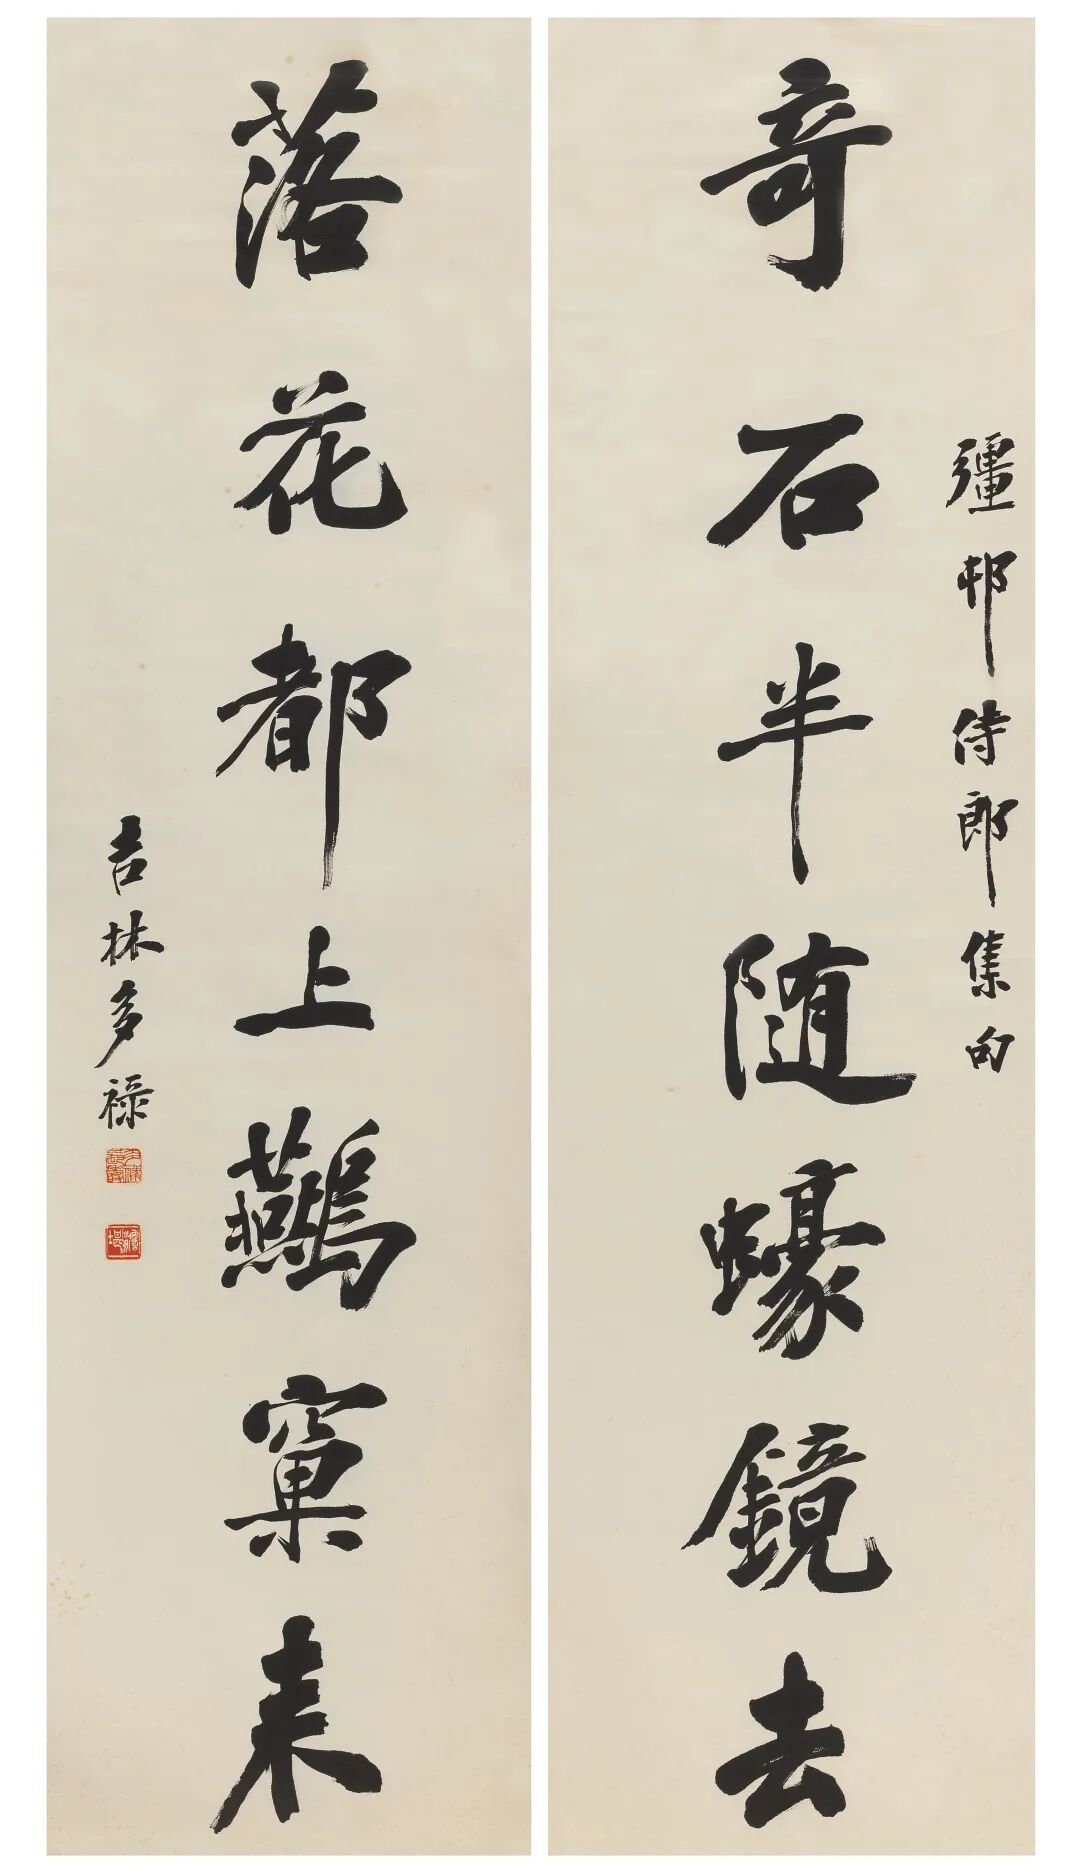 奇石半随蠔鏡去
彊邨侍郎集句
落花都上鷰窠来
吉林多禄